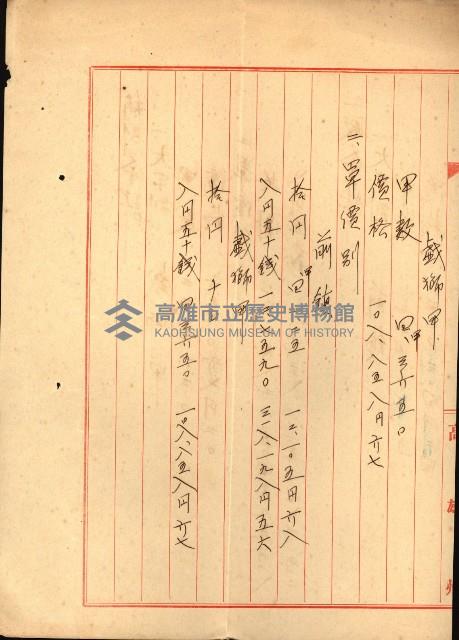 戯獅甲
甲数 四甲三六五〇
價格 一〇八、八五八円六七
二、單價別
前鎮
拾円 四甲一五 一二、一〇五円六八
八円五十銭 一二七五九〇 三一八、一九八円五六
戯獅甲
拾円 ナシ
八円五十銭 四甲三六五〇 一〇八、八五八円六七
高雄州
高雄市立歷史博物館
KAOHSIUNG MUSEUM OF HISTORY